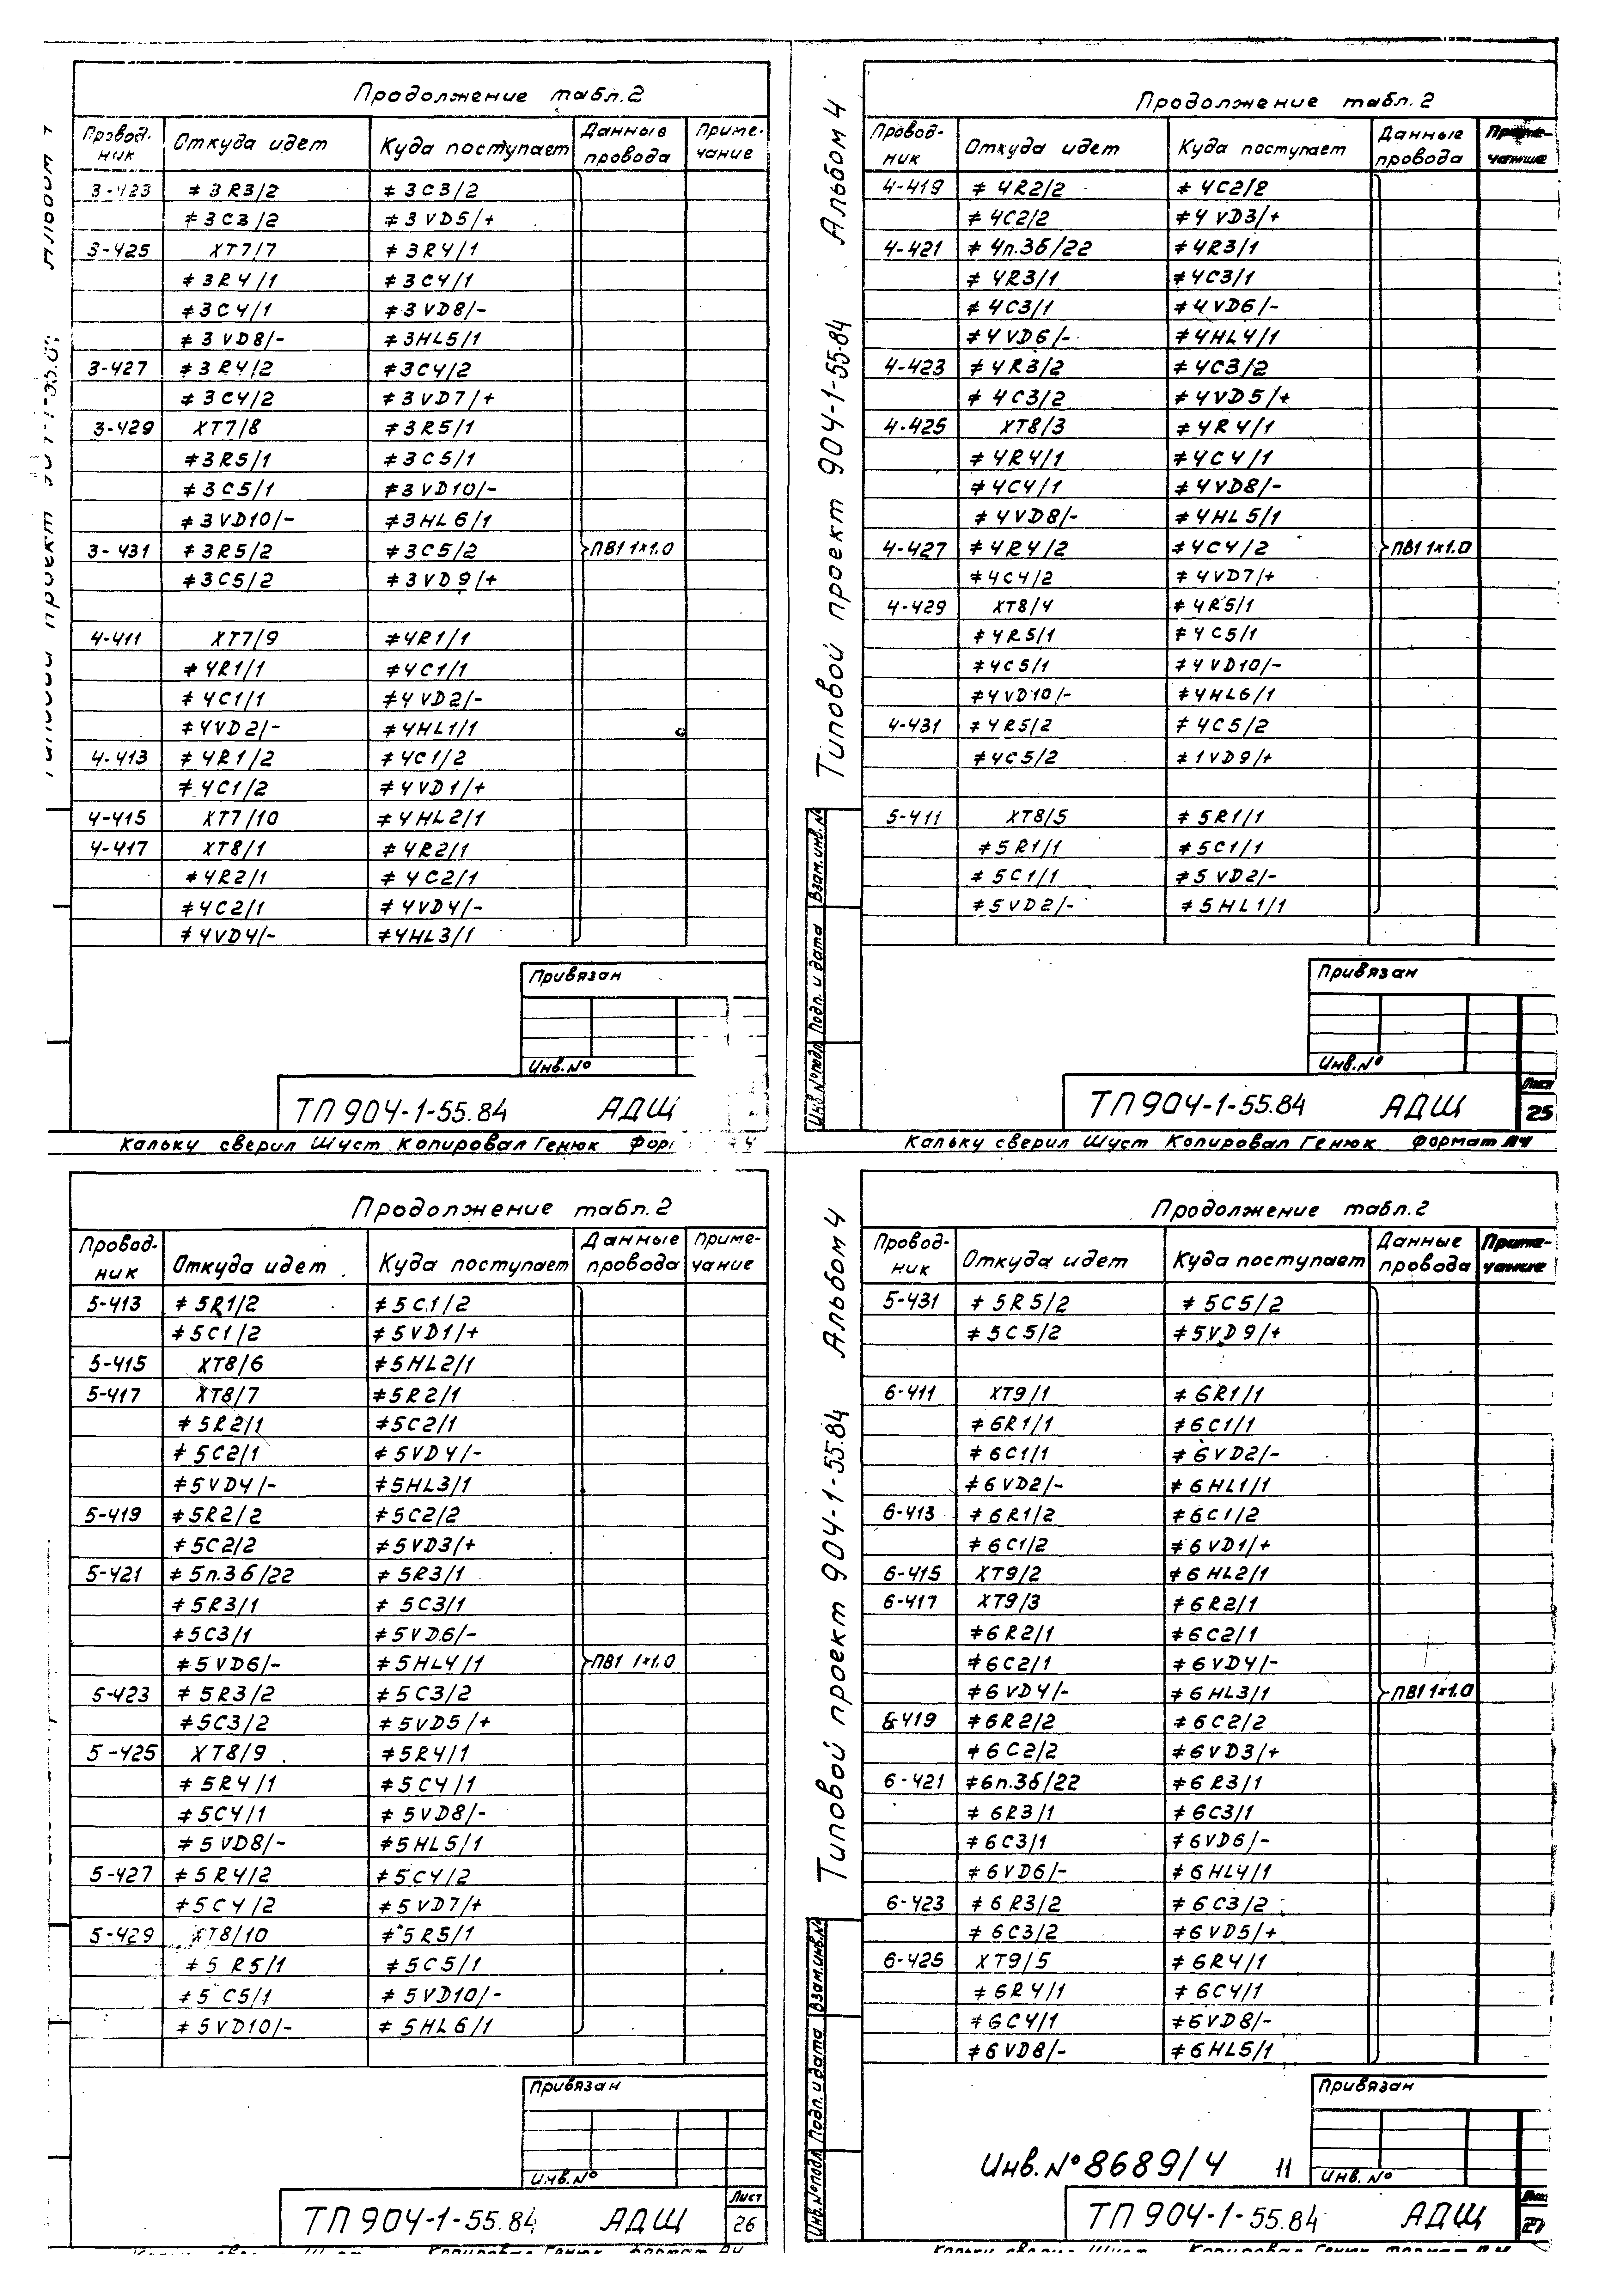 Продолжение табл.2
Провод-ник Откуда идет Куда поступает Данные провода Приме-чание
3-423 ≠3R3/2 ≠3C3/2
≠3C3/2 ≠3VD5/+
3-425 XT7/7 ≠3R4/1
≠3R4/1 ≠3C4/1
≠3C4/1 ≠3VD8/-
≠3VD8/- ≠3HL5/1
3-427 ≠3R4/2 ≠3C4/2
≠3C4/2 ≠3VD7/+
3-429 XT7/8 ≠3R5/1
≠3R5/1 ≠3C5/1
≠3C5/1 ≠3VD10/-
≠3VD10/- ≠3HL6/1
3-431 ≠3R5/2 ≠3C5/2 ПВ1 1×1.0
≠3C5/2 ≠3VD9/+
4-411 XT7/9 ≠4R1/1
≠4R1/1 ≠4C1/1
≠4C1/1 ≠4VD2/-
≠4VD2/- ≠4HL1/1
4-413 ≠4R1/2 ≠4C1/2
≠4C1/2 ≠4VD1/+
4-415 XT7/10 ≠4HL2/1
4-417 XT8/1 ≠4R2/1
≠4R2/1 ≠4C2/1
≠4C2/1 ≠4VD4/-
≠4VD4/- ≠4HL3/1
Привязан
Инв.№
ТП 904-1-55.84 АДЩ
Кальку сверил Шуст Копировал Генюк
Типовой проект 904-1-55.84 Альбом 4
Продолжение табл.2
Провод-ник Откуда идет Куда поступает Данные провода Приме-чание
4-419 ≠4R2/2 ≠4C2/2
≠4C2/2 ≠4VD3/+
4-421 ≠4п.3б/22 ≠4R3/1
≠4R3/1 ≠4C3/1
≠4C3/1 ≠4VD6/-
≠4VD6/- ≠4HL4/1
4-423 ≠4R3/2 ≠4C3/2
≠4C3/2 ≠4VD5/+
4-425 XT8/3 ≠4R4/1
≠4R4/1 ≠4C4/1
≠4C4/1 ≠4VD8/-
≠4VD8/- ≠4HL5/1
4-427 ≠4R4/2 ≠4C4/2 ПВ1 1×1.0
≠4C4/2 ≠4VD7/+
4-429 XT8/4 ≠4R5/1
≠4R5/1 ≠4C5/1
≠4C5/1 ≠4VD10/-
≠4VD10/- ≠4HL6/1
4-431 ≠4R5/2 ≠4C5/2
≠4C5/2 ≠1VD9/+
5-411 XT8/5 ≠5R1/1
≠5R1/1 ≠5C1/1
≠5C1/1 ≠5VD2/-
≠5VD2/- ≠5HL1/1
Инв.№подл. Подп. и дата Взам.инв.№
Привязан
Инв.№
ТП 904-1-55.84 АДЩ Лист 25
Кальку сверил Шуст Копировал Генюк Формат А4
Продолжение табл.2
Провод-ник Откуда идет Куда поступает Данные провода Приме-чание
5-413 ≠5R1/2 ≠5C1/2
≠5C1/2 ≠5VD1/+
5-415 XT8/6 ≠5HL2/1
5-417 XT8/7 ≠5R2/1
≠5R2/1 ≠5C2/1
≠5C2/1 ≠5VD4/-
≠5VD4/- ≠5HL3/1
5-419 ≠5R2/2 ≠5C2/2
≠5C2/2 ≠5VD3/+
5-421 ≠5п.3б/22 ≠5R3/1
≠5R3/1 ≠5C3/1
≠5C3/1 ≠5VD6/-
≠5VD6/- ≠5HL4/1 ПВ1 1×1.0
5-423 ≠5R3/2 ≠5C3/2
≠5C3/2 ≠5VD5/+
5-425 XT8/9 ≠5R4/1
≠5R4/1 ≠5C4/1
≠5C4/1 ≠5VD8/-
≠5VD8/- ≠5HL5/1
5-427 ≠5R4/2 ≠5C4/2
≠5C4/2 ≠5VD7/+
5-429 XT8/10 ≠5R5/1
≠5R5/1 ≠5C5/1
≠5C5/1 ≠5VD10/-
≠5VD10/- ≠5HL6/1
Привязан
Инв.№
ТП 904-1-55.84 АДЩ Лист 26
Типовой проект 904-1-55.84 Альбом 4
Продолжение табл.2
Провод-ник Откуда идет Куда поступает Данные провода Приме-чание
5-431 ≠5R5/2 ≠5C5/2
≠5C5/2 ≠5VD9/+
6-411 XT9/1 ≠6R1/1
≠6R1/1 ≠6C1/1
≠6C1/1 ≠6VD2/-
≠6VD2/- ≠6HL1/1
6-413 ≠6R1/2 ≠6C1/2
≠6C1/2 ≠6VD1/+
6-415 XT9/2 ≠6HL2/1
6-417 XT9/3 ≠6R2/1
≠6R2/1 ≠6C2/1
≠6C2/1 ≠6VD4/-
≠6VD4/- ≠6HL3/1 ПВ1 1×1.0
6-419 ≠6R2/2 ≠6C2/2
≠6C2/2 ≠6VD3/+
6-421 ≠6п.3б/22 ≠6R3/1
≠6R3/1 ≠6C3/1
≠6C3/1 ≠6VD6/-
≠6VD6/- ≠6HL4/1
6-423 ≠6R3/2 ≠6C3/2
≠6C3/2 ≠6VD5/+
6-425 XT9/5 ≠6R4/1
≠6R4/1 ≠6C4/1
≠6C4/1 ≠6VD8/-
≠6VD8/- ≠6HL5/1
Инв.№подл. Подп. и дата Взам.инв.№
Привязан
Инв.№
Инв.№ 8689/4 11
ТП 904-1-55.84 АДЩ 27